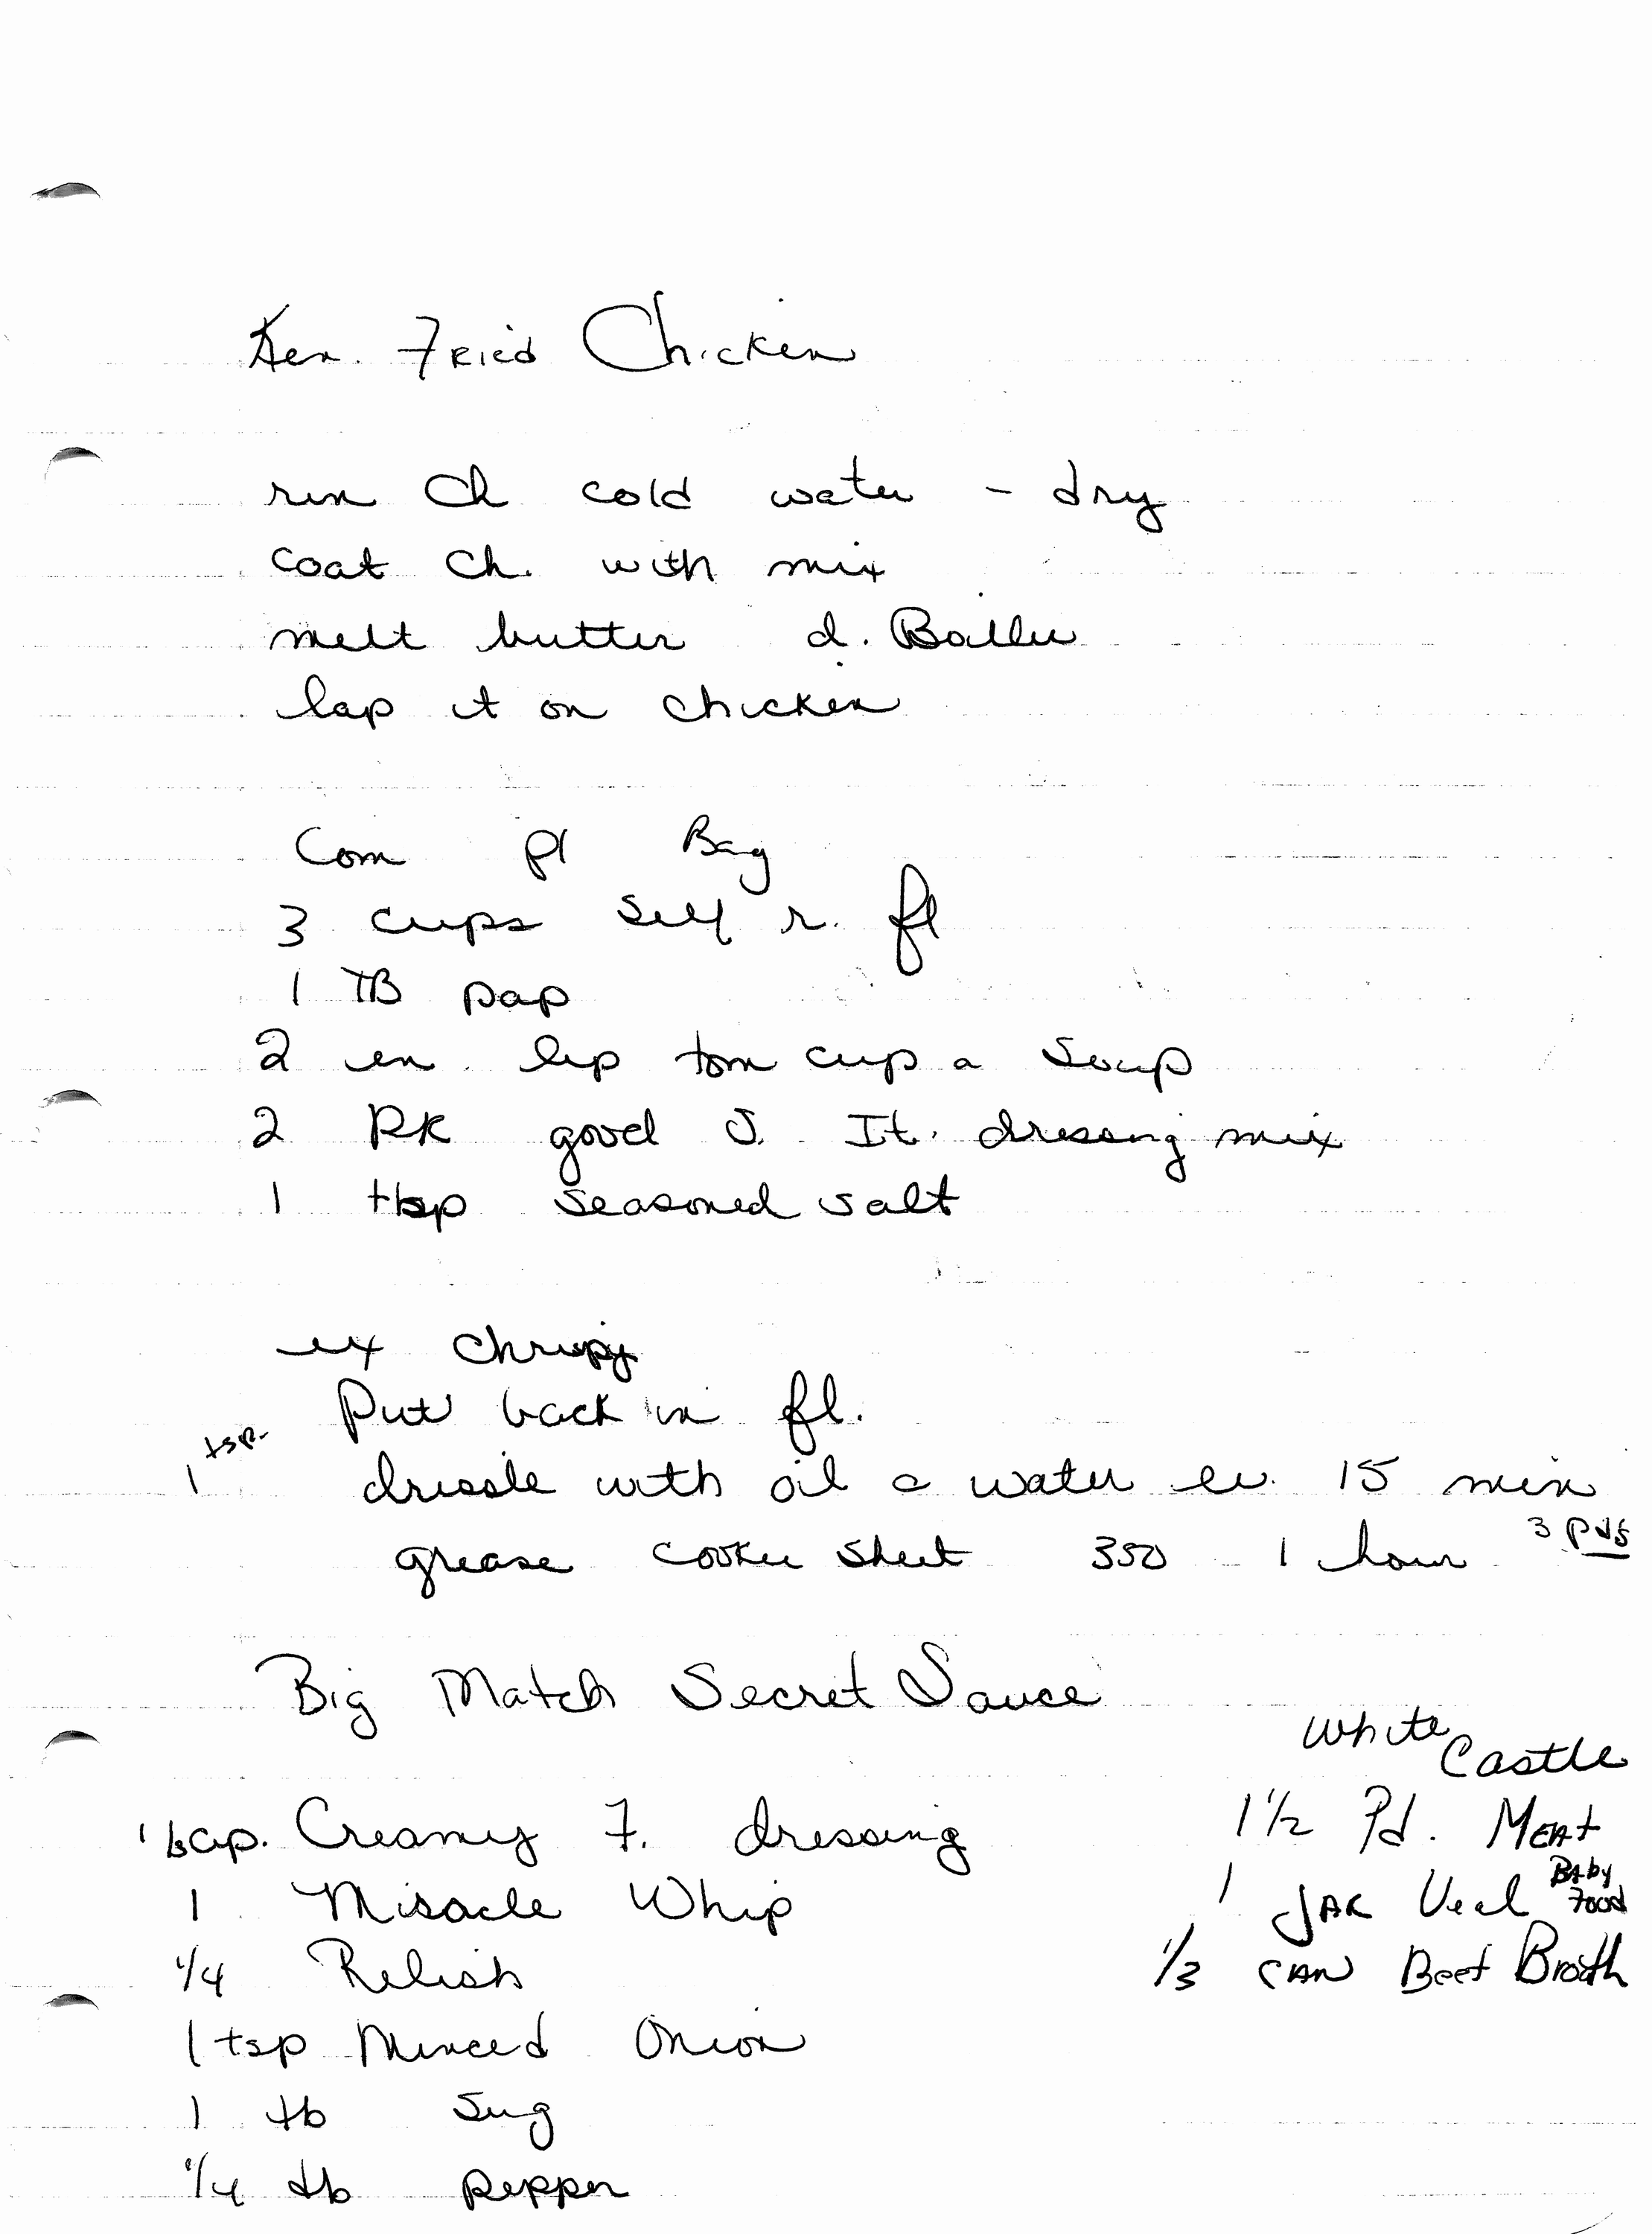 Ken. Fried Chicken
run Ch cold water - dry
coat Ch. with mix
melt butter d. Boiler
lap it on chicken
Com pl Bag
3 cups Self r. fl
1 TB pap
2 en lip tom cup a Soup
2 PK good S. It. dressing mix
1 tbsp Seasoned salt
ex
Put back in fl.
1 tsp. drissle with oil & water ev. 15 min
grease cookie sheet 350 1 hour 3 pds
Big Match Secret Sauce
Creamy F. dressing
1 Miracle Whip
1/4 Relish
1 tsp Minced Onion
1 tb Sug
1/4 tb pepper
White Castle
1 1/2 Pd. Meat
1 Jar Veal Baby Food
1/3 can Beef Broth